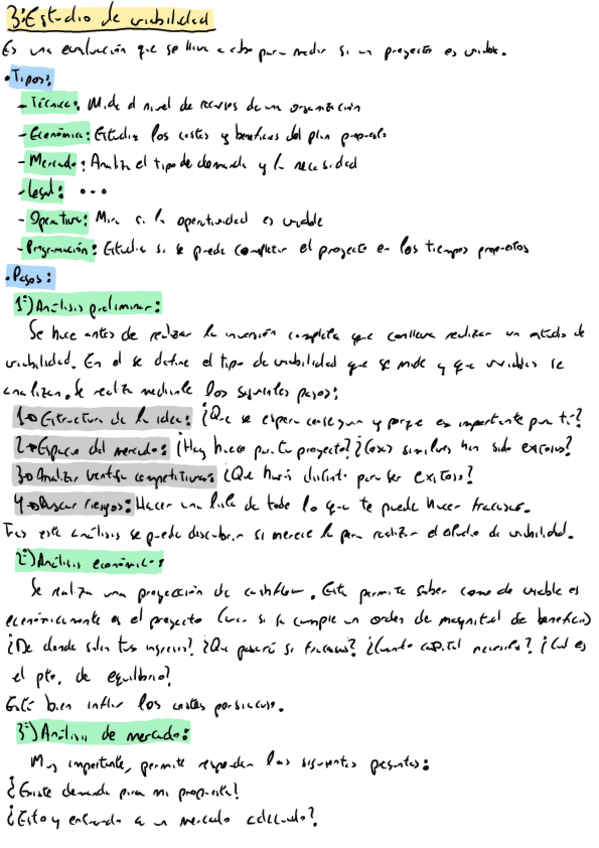 3: Estudio de viabilidad
Es una evaluación que se lleva a cabo para medir si un proyecto es viable.
• Tipos:
- Técnica: Mide el nivel de recursos de una organización
- Económica: Estudia los costes y beneficios del plan propuesto
- Mercado: Analiza el tipo de demanda y la necesidad
- Legal: ...
- Operativa: Mira si la operatividad es viable
- Programación: Estudia si se puede completar el proyecto en los tiempos propuestos
• Pasos:
1º) Análisis preliminar:
Se hace antes de realizar la inversión completa que conlleva realizar un estudio de
viabilidad. En el se define el tipo de viabilidad que se mide y que variables se
analizan. Se realiza mediante los siguientes pasos:
1→ Estructura de la idea: ¿Que se espera conseguir y porque es importante para ti?
2→ Espacio del mercado: ¿Hay hueco para tu proyecto? ¿Cosas similares han sido exitosas?
3→ Analizar ventajas competitivas: ¿Que hará distinto para ser exitoso?
4→ Buscar riesgos: Hacer una lista de todo lo que te puede hacer fracasar.
Tras este análisis se puede descubrir si merece la pena realizar el estudio de viabilidad.
2º) Análisis económico:
Se realiza una proyección de cashflow. Esta permite saber como de viable es
económicamente es el proyecto (ver si se cumple un orden de magnitud de beneficio)
¿De donde salen tus ingresos? ¿Que pasará si fracasas? ¿Cuanto capital necesito? ¿Cual es
el pto. de equilibrio?
Está bien inflar los costes porsiacaso.
3º) Análisis de mercado:
Muy importante, permite responder las siguientes preguntas:
¿Existe demanda para mi propuesta?
¿Estoy entrando a un mercado adecuado?